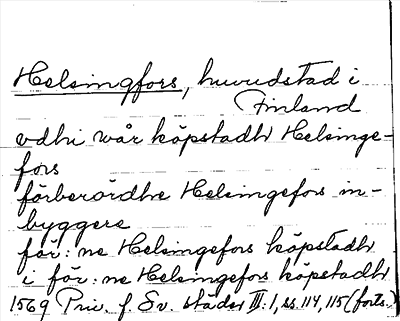 Helsingfors, huvudstad i
Finland
vdhi wår köpstadh Helsinge-
fors
förberördhe Helsingefors in-
byggere
för: ne Helsingefors köpstadh
i för: ne Helsingefors köpstadh
1569 Priv. f. Sv. städer III: 1, ss. 114, 115 (forts.)